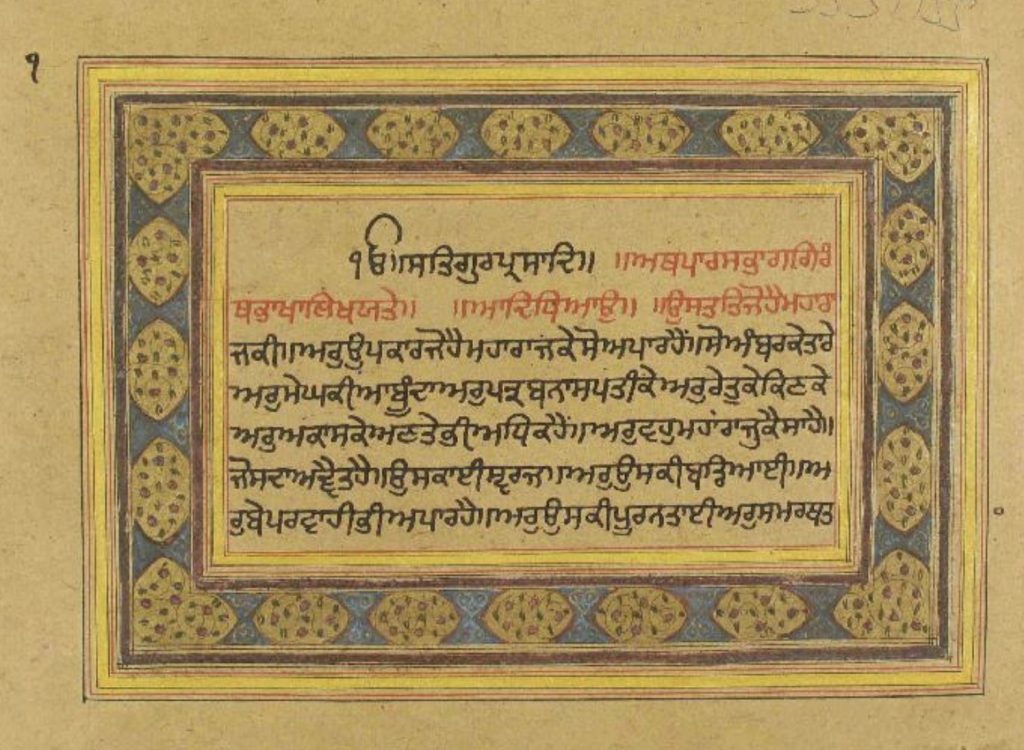 ੧
ੴ॥ਸਤਿਗੁਰਪ੍ਰਸਾਦਿ॥ ॥ਅਥਪਾਰਸਭਾਗਗਿਰੰ
ਥਭਾਖਾਲਿਖਯਤੇ॥ ॥ਆਦਿਧਿਆਉ॥ ॥ਉਸਤਤਿਜੋਹੈਮਹਾਰਾ
ਜਕੀ॥ਅਰੁਉਪਕਾਰਜੋਹੈਮਹਾਰਾਜਕੇਸੋਅਪਾਰਹੈਂ॥ਸੋਅੰਬਰਕੇਤਾਰੇ
ਅਰੁਮੇਘਕੀਆਬੁੰਦਾਅਰੁਪਤ੍ਰਬਨਾਸਪਤੀਕੇਅਰੁਰੇਤੁਕੇਕਿਣਕੇ
ਅਰੁਅਕਾਸਕੇਅਣਤੇਭੀਅਧਿਕਹੈਂ॥ਅਰੁਵਹੁਮਹਾਂਰਾਜੁਕੈਸਾਹੈ॥
ਜੋਸਦਾਅਦ੍ਵੈਤਹੈ॥ਉਸਕਾਈਸ੍ਵਰਜ॥ਅਰੁਉਸਕੀਬਡਿਆਈ॥ਅ
ਰੁਬੇਪਰਵਾਹੀਭੀਅਪਾਰਹੈ॥ਅਰੁਉਸਕੀਪੂਰਨਤਾਈਅਰੁਸਮਰਥਤ